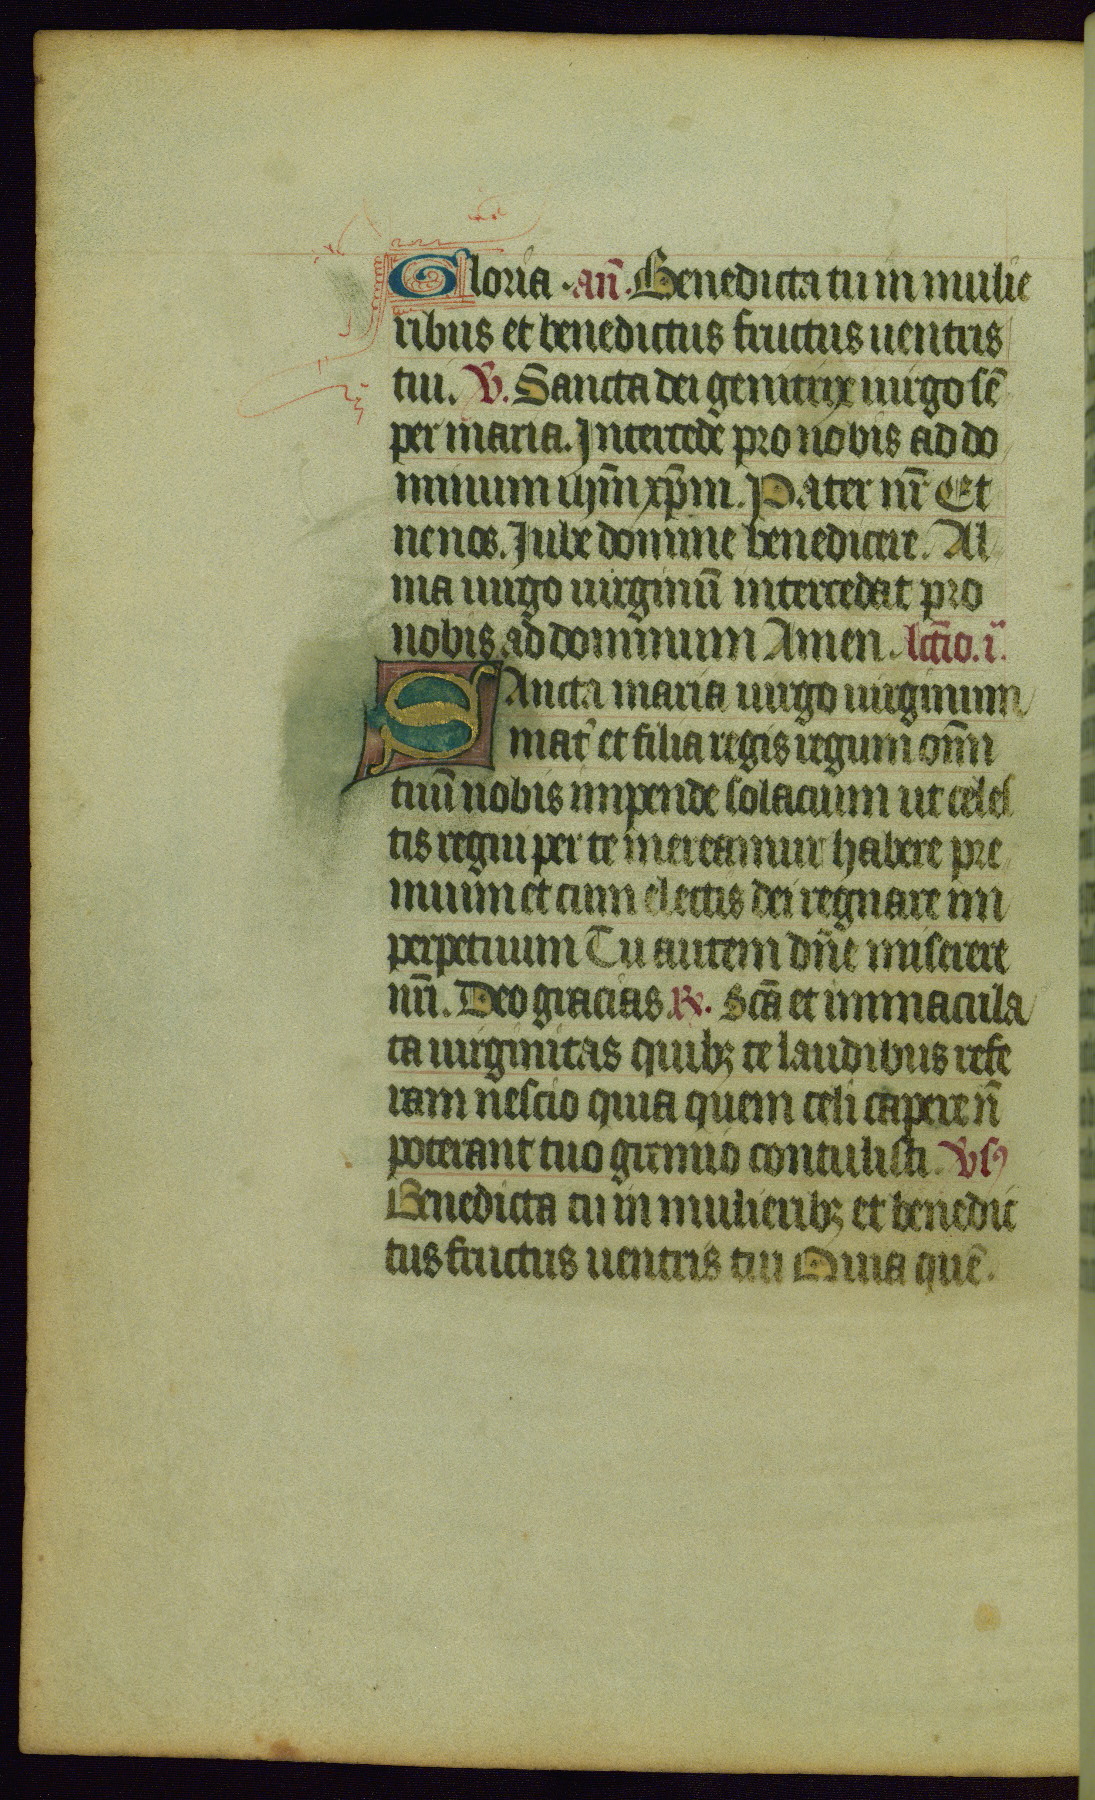 Gloria. an̄. Benedicta tu in mulie
ribus et benedictus fructus uentris
tui. V. Sancta dei genitrix uirgo sē
per maria. Intercede pro nobis ad do
minum ihm̄ xp̄m. Pater nr̄ Et
ne nos. Jube domine benedicere. Al
ma uirgo uirginū intercedat pro
nobis ad dominum Amen. lcc̄io. i.
SAncta maria uirgo uirginum
mat᷑ et filia regis regum om̄
tuū nobis impende solacium ut celes
tis regni per te mereamur habere pre
mium et cum electis dei regnare im
perpetuum Tu autem dn̄e miserere
nr̄i. Deo gracias. R. Scā et immacula
ta uirginitas quibꝫ te laudibus refe
ram nescio quia quem celi capere n̄
poterant tuo gremio contulisti. Vsꝰ
Benedicta tu in mulieribꝫ et benedic
tus fructus uentris tui Quia quē.